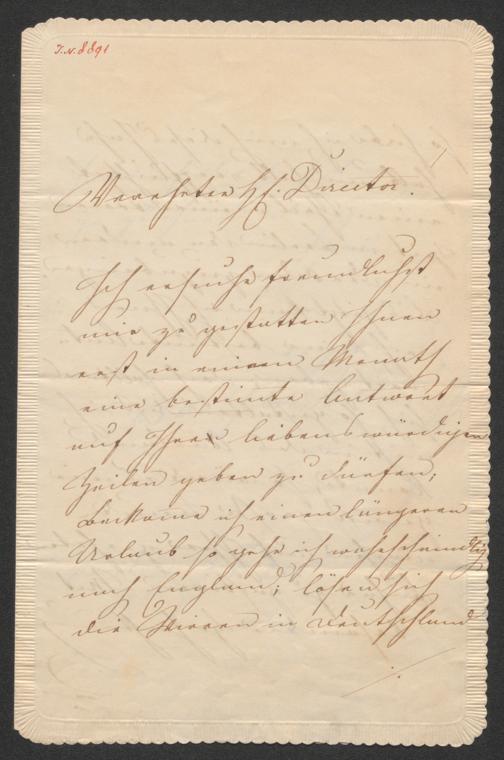 I.N. 8891
Verehrter H. Director.
Ich ersuche freundlichst
mir zu gestatten Ihnen
erst in einem Monath
eine bestimte Antwort
auf Ihre liebenswürdigen
Zeilen geben zu dürfen;
bekome ich einen längeren
Urlaub so gehe ich wahrscheinlich
nach England; lösen sich
die Wirren in Deutschland
./.